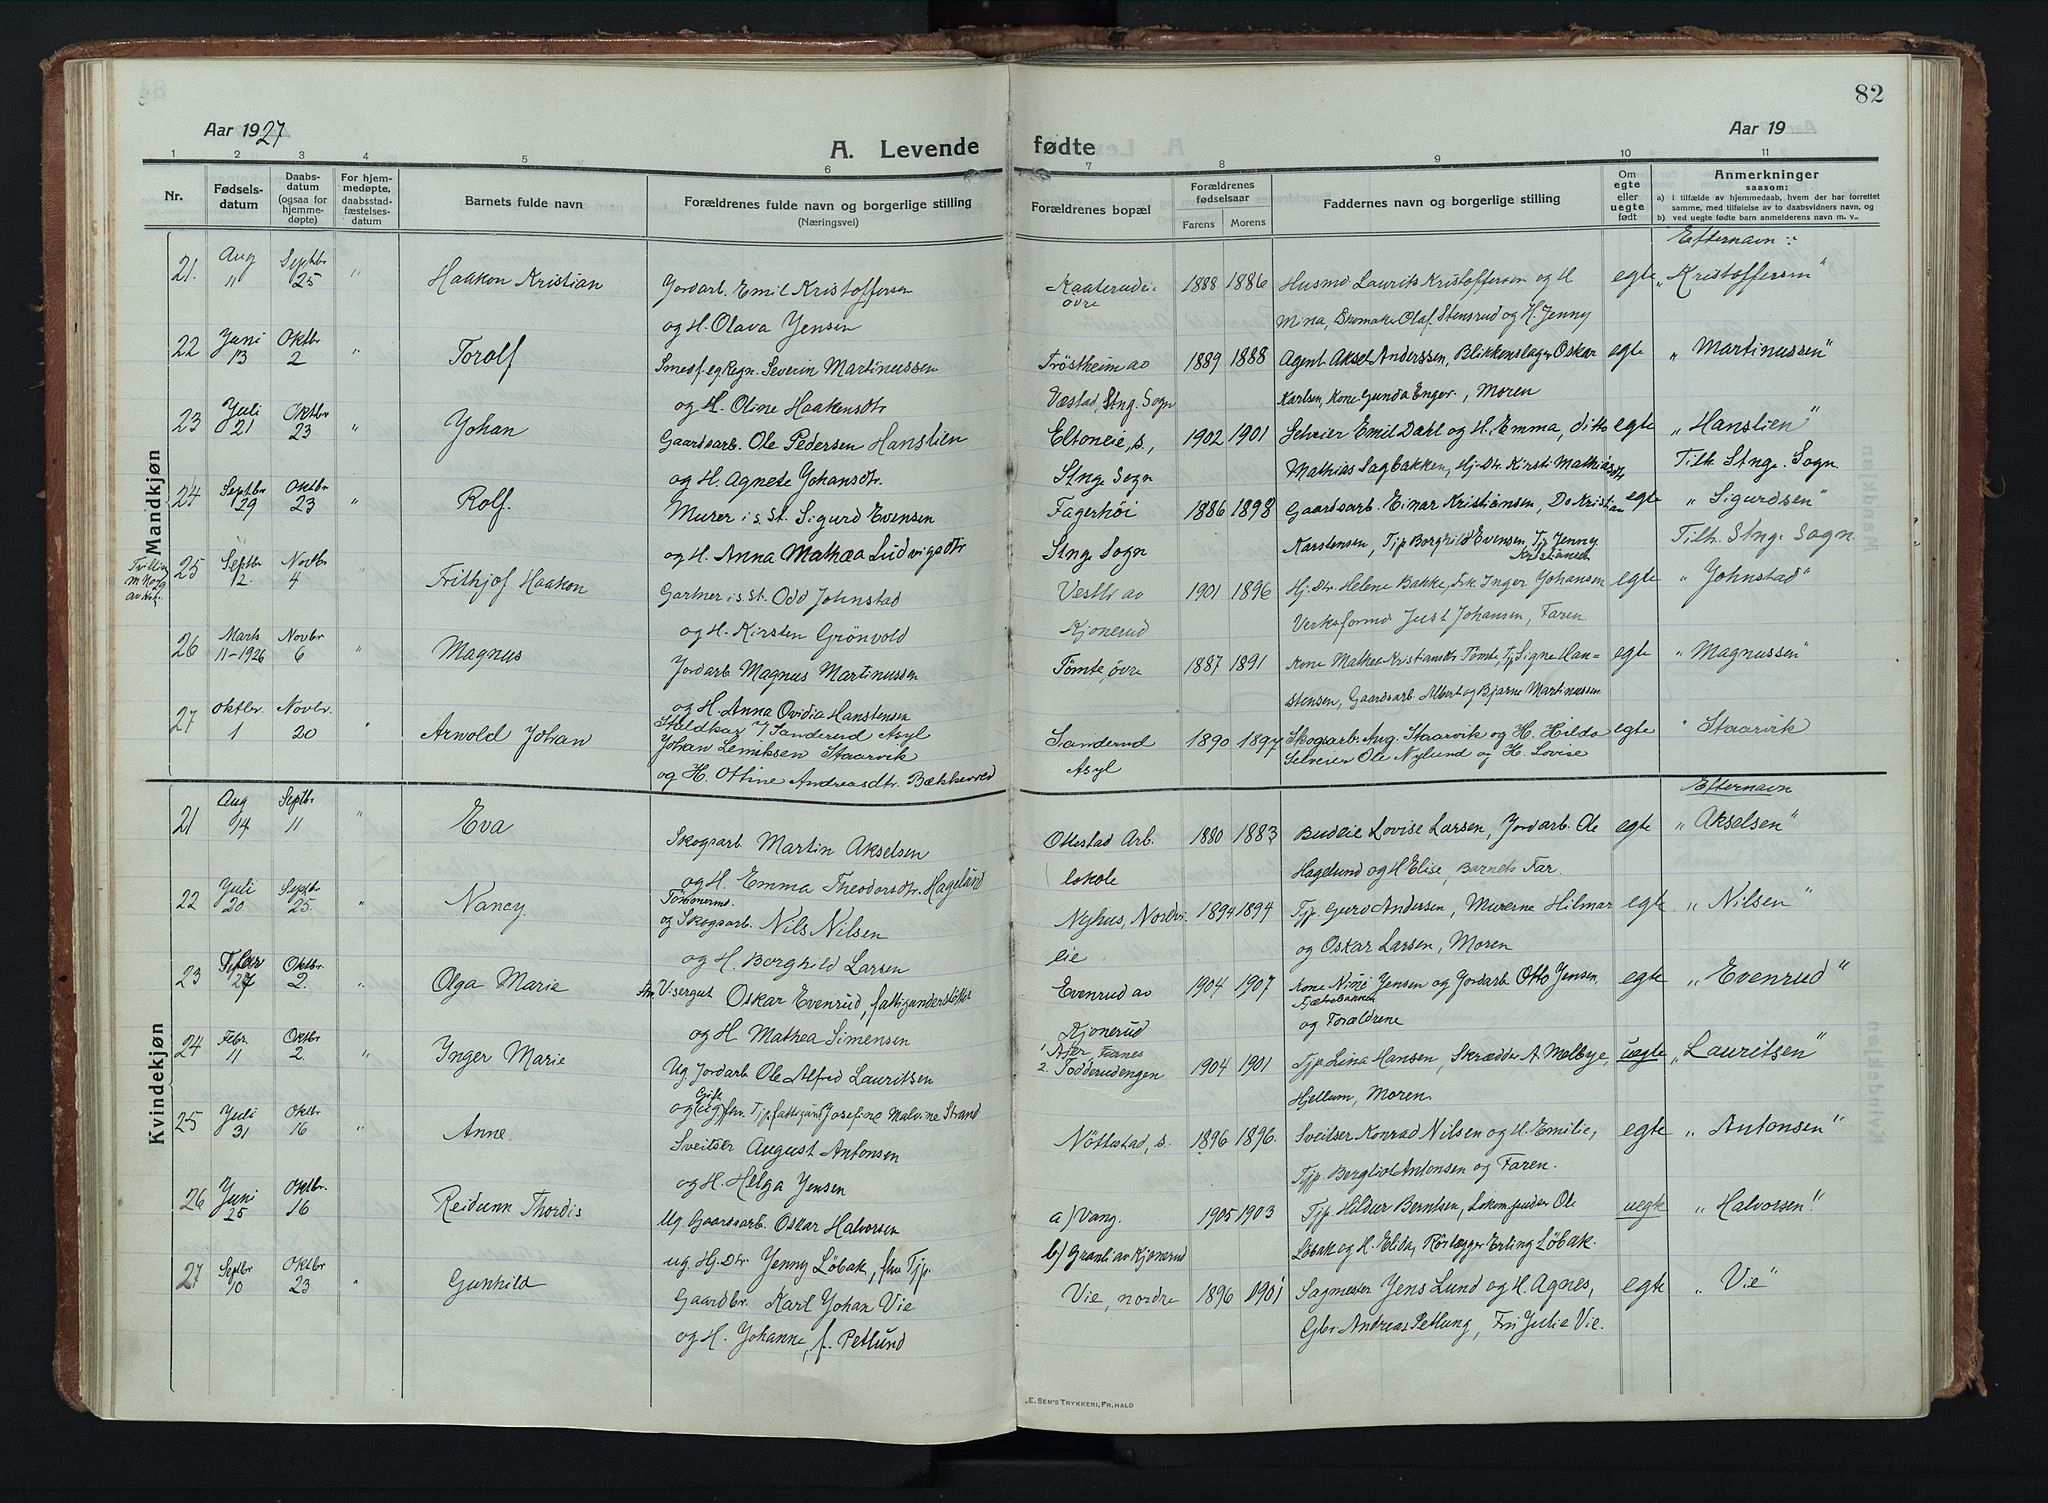 82
Aar 1927
A. Levende fødte
Aar 19
1 2 3 4 5 6 7 8 9 10 11
Nr. Fødsels-datum Daabs-datum (ogsaa for hjemme-døpte) For hjem-medøpte, daabsstad-fæstelses-datum Barnets fulde navn Forældrenes fulde navn og borgerlige stilling (Næringsvei) Forældrenes bopæl Forældrenes fødselsaar Farens Morens Faddernes navn og borgerlige stilling Om egte eller uegte født Anmerkninger saasom:
a) i tilfælde av hjemmedaab, hvem der har forrettet samme, med tilføielse av to daabsvidners navn, og
b) ved uegte fødte barn anmelderens navn m. v..
Mandkjøn
Efternavn:
21. Aug 11 Septbr 25 " Haakon Kristian Jordarb. Emil Kristoffersen Kaaterudeie 1888 1886 Husmd Laurits Kristoffersen og H egte "Kristoffersen"
og H. Olava Jensen øvre Mina, Skomaker Olaf Stensrud og H. Jenny
22 Juni 13 Oktbr 2 " Torolf Smedf. og Regn. Severin Martinussen Tröstheim av 1889 1888 Agent Aksel Anderssen, Blikkenslager Oskar egte "Martinussen"
og H. Oline Haakensdtr Væstad, Stnge Sogn Karlsen, Kone Gunda Enger, Moren
23 Juli 21 Oktbr 23 " Johan Gaardsarb. Ole Pedersen Hanslien Eltoneie, s., 1902 1901 Selveier Emil Dahl og H. Emma, ditto egte "Hanslien"
og H. Agnete Johansdtr. Stnge Sogn Mathias Sagbakken, Hj. Dtr. Kirsti Mathiasdtr Tilh. Stnge. Sogn.
24 Septbr 29 Oktbr 23 " Rolf. Murer i s. St. Sigurd Evensen Fagerhöi 1886 1898 Gaardsarb. Einar Kristiansen, Do Kristian egte "Sigurdsen"
og H. Anna Mathea Ludvigsdtr Stnge Sogn Karstensen, Tjp Borghild Evensen, Tjp Jenny Kristiansen Tilh. Stnge Sogn
25 Septbr 12. Novbr 4 Frithjof Haakon Gartner i s. St. Odd Johnstad Vestli av 1901 1896 Hj. Dtr. Helene Bakke, Frk Inger Johansen egte "Johnstad"
og H. Kirsten Grönvold Kjonerud Verksformd Just Johansen, Faren.
26 Marts 11-1926 Novbr 6 " Magnus Jordarb Magnus Martinussen Tömte, övre 1887 1891 Kone Mathea Kristiansdtr Tömte, Tj Signe Han- egte "Magnussen"
og H. Anna Ovidia Hanstensen stensen, Gaardsarb Albert og Bjarne Martinussen
27 Oktbr. 1 Novbr. 20 " Arnold Johan Staldkar v/ Sanderud Asyl Sanderud 1890 1897 Skogsarb. Aug. Staarvik og H. Hilda egte "Staarvik
Johan Leniksen Staarvik Asyl Selveier Ole Nylund og H. Lovise
og H. Ottine Andreasdtr. Bækkevold
Kvindekjøn
Efternavn
21 Aug 14 Septbr 11 " Eva Skogsarb Martin Akselsen Ottestad Arb. 1880 1883 Budeie Lovise Larsen, Jordarb. Ole egte "Akselsen"
og H. Emma Theodorsdtr. Hagelund lokale Hagelund og H Elise, Barnets Far.
22 Juli 20 Septbr 25. " Nancy. Tömmermd. og Skogsarb. Nils Nilsen Nyhus, Nordvi 1894 1894 Tjp. Guro Andersen, Murerne Hilmar egte "Nilsen"
og H. Borghild Larsen eie og Oskar Larsen, Moren
23 Febr 27 Oktbr. 2. " Olga Marie Visergut Oskar Evenrud, fattigunderstöttet Evenrud av 1904 1907 Kone Nine Jensen og Jordarb Otto Jensen, egte "Evenrud"
og H Mathea Simensen Kjonerud og Forældrene
24 Febr. 11 Oktbr 2. " Inger Marie Ug Jordarb Ole Alfred Lauritsen 1 Ajer, Fanes 1904 1901 Tjp. Lina Hansen, Skrædder A Melbye, uegte "Lauritsen"
Gift og (ug) fhv. Tjp. Josefine Malvine Strand 2. Tödderudengen Hjellum, Moren
25 Juli 31 Oktbr 16 " Anne. Sveitser August Antonsen Nöttestad, s. 1896 1896. Sveitser Konrad Nilsen og H. Emilie, egte "Antonsen"
og H. Helga Jensen Tjp. Bergliot Antonsen og Faren.
26 Juni 25 Oktbr. 16 Reidunn Thordis Ug. Gaardsarb. Oskar Halvorsen a) Vang. 1905 1903 Tjp. Hildur Berntsen, Lokom. pudser Ole uegte "Halvorsen"
ug. Hj. Dtr Jenny Löbak, fhv Tjp. b) Granli av Kjonerud Löbak og H. Elida, Rörlægger Erling Löbak.
27 Septbr 10 Oktbr 23 " Gunhild Gaardbr. Karl Johan Vie Vie, nordre 1896 1901 Sagmester Jens Lund og H. Agnes, egte "Vie"
og H. Johanne, f. Petlund Gbr. Andreas Petlung, Fri Julie Vie.
E. SEM'S TRYKKERI, FR. HALD